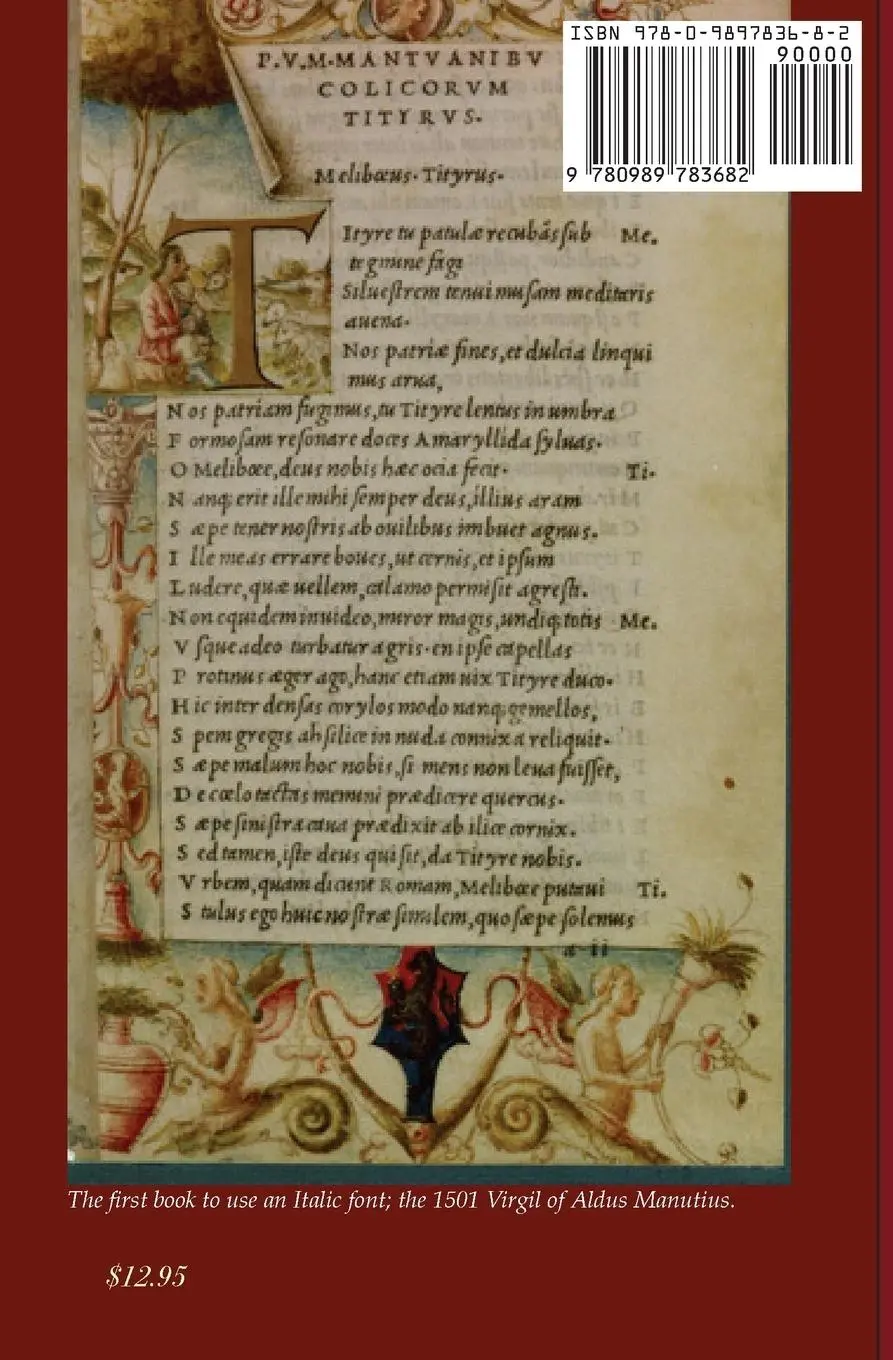 ISBN 978-0-9897836-8-2
90000
9 780989 783682
P.V.M.MANTVANI BV
COLICORVM
TITYRVS.
Melibœus. Tityrus.
TItyre tu patulæ recubãs ſub Me.
tegmine fagi
Silueſtrem tenui muſam meditaris
auena.
Nos patriæ fines, et dulcia linqui
mus arua,
N os patriam fugimus, tu Tityre lentus in umbra
F ormoſam reſonare doces Amaryllida ſyluas.
O Melibœe, deus nobis hæc ocia fecit. Ti.
N anq; erit ille mihi ſemper deus, illius aram
S æpe tener noſtris ab ouilibus imbuet agnus.
I lle meas errare boues, ut cernis, et ipſum
L udere, quæ uellem, calamo permiſit agreſti.
N on equidem inuideo, miror magis, undiq; totis Me.
V ſque adeo turbatur agris. en ipſe capellas
P rotinus æger ago, hanc etiam uix Tityre duco.
H ic inter denſas corylos modo nanq; gemellos,
S pem gregis ah ſilice in nuda connixa reliquit.
S æpe malum hoc nobis, ſi mens non leua fuiſſet,
D e cœlo tactas memini prædicere quercus.
S æpe ſiniſtra caua prædixit ab ilice cornix.
S ed tamen, iſte deus qui ſit, da Tityre nobis.
V rbem, quam dicunt Romam, Melibœe putaui Ti.
S tulus ego huic noſtræ ſimilem, quo ſæpe ſolemus
a ii
The first book to use an Italic font; the 1501 Virgil of Aldus Manutius.
$12.95